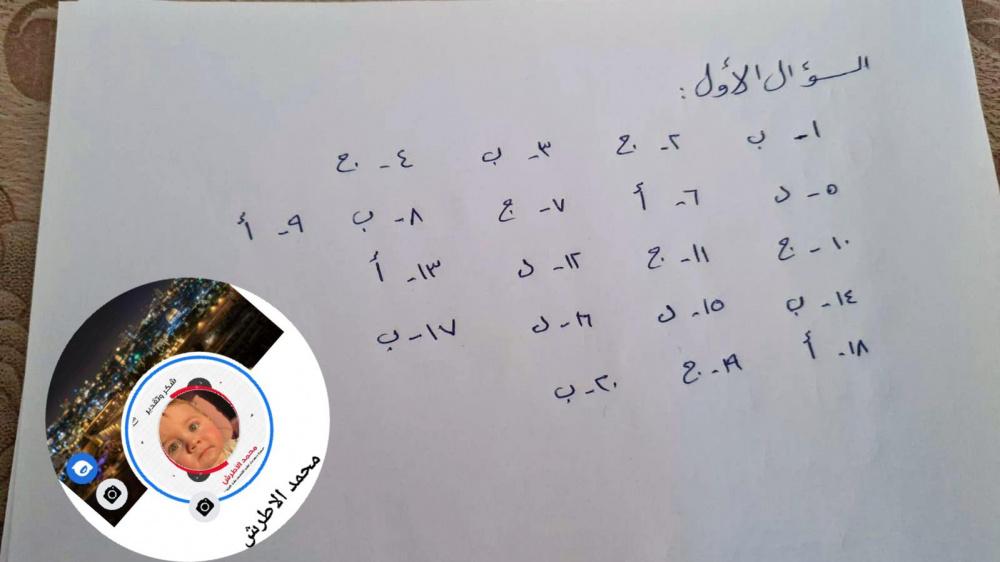 السؤال الأول:
١- ب ٢- ج ٣- ب ٤- ج
٥- د ٦- أ ٧- ج ٨- ب ٩- أ
١٠- ج ١١- ج ١٢- د ١٣- أ
١٤- ب ١٥- د ١٦- د ١٧- ب
١٨- أ ١٩- ج ٢٠- ب
شكر وتقدير
محمد الاطرش
محمد الاطرش